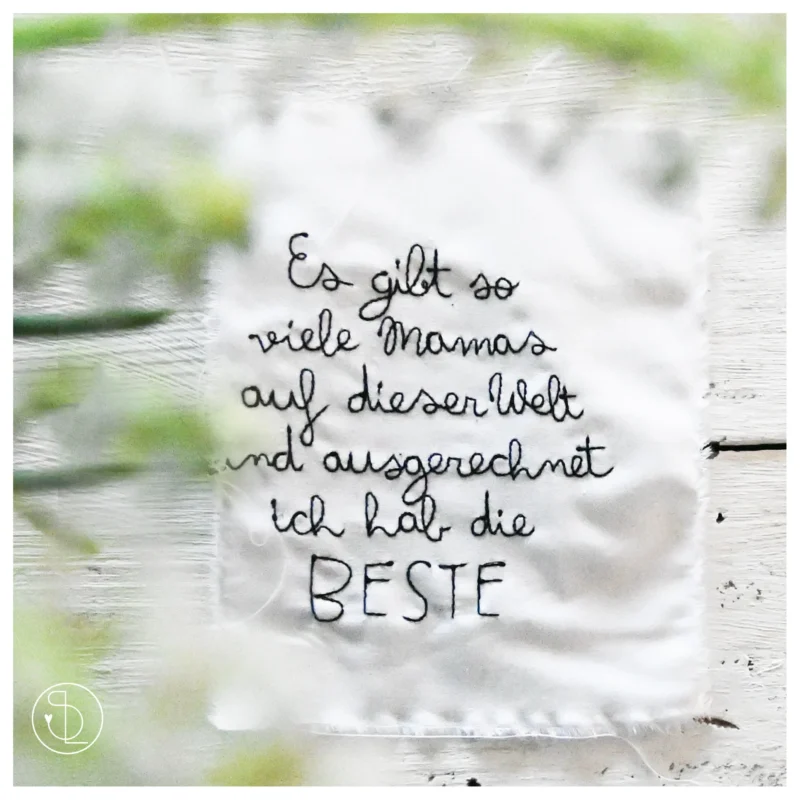 Es gibt so
viele Mamas
auf dieser Welt
und ausgerechnet
ich hab die
BESTE